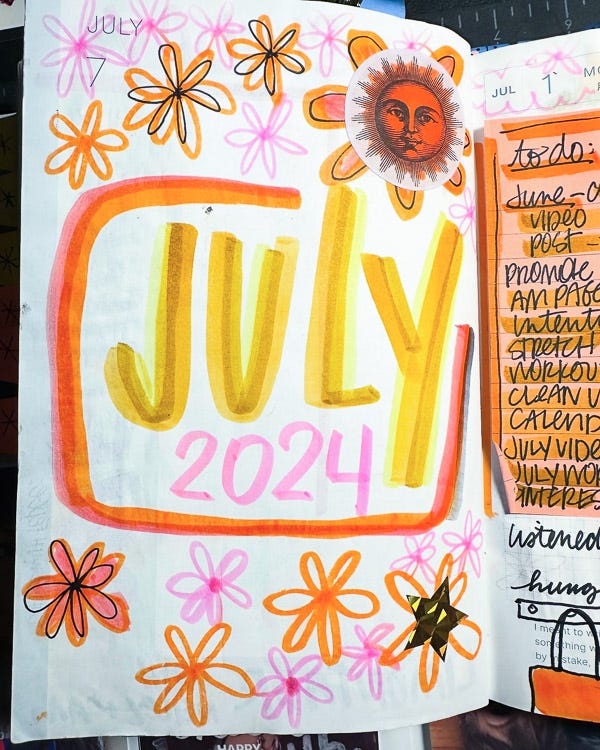 JULY
7
JULY
2024
JUL 1
to do:
June -
VIDEO
POST -
PROMOTE
AM PAGE
STRETCH
WORKOU
CLEAN U
CALEND
JULY VIDE
JULY WOR
listened
hung
I meant to w
something w
by mistake,
HAPPY